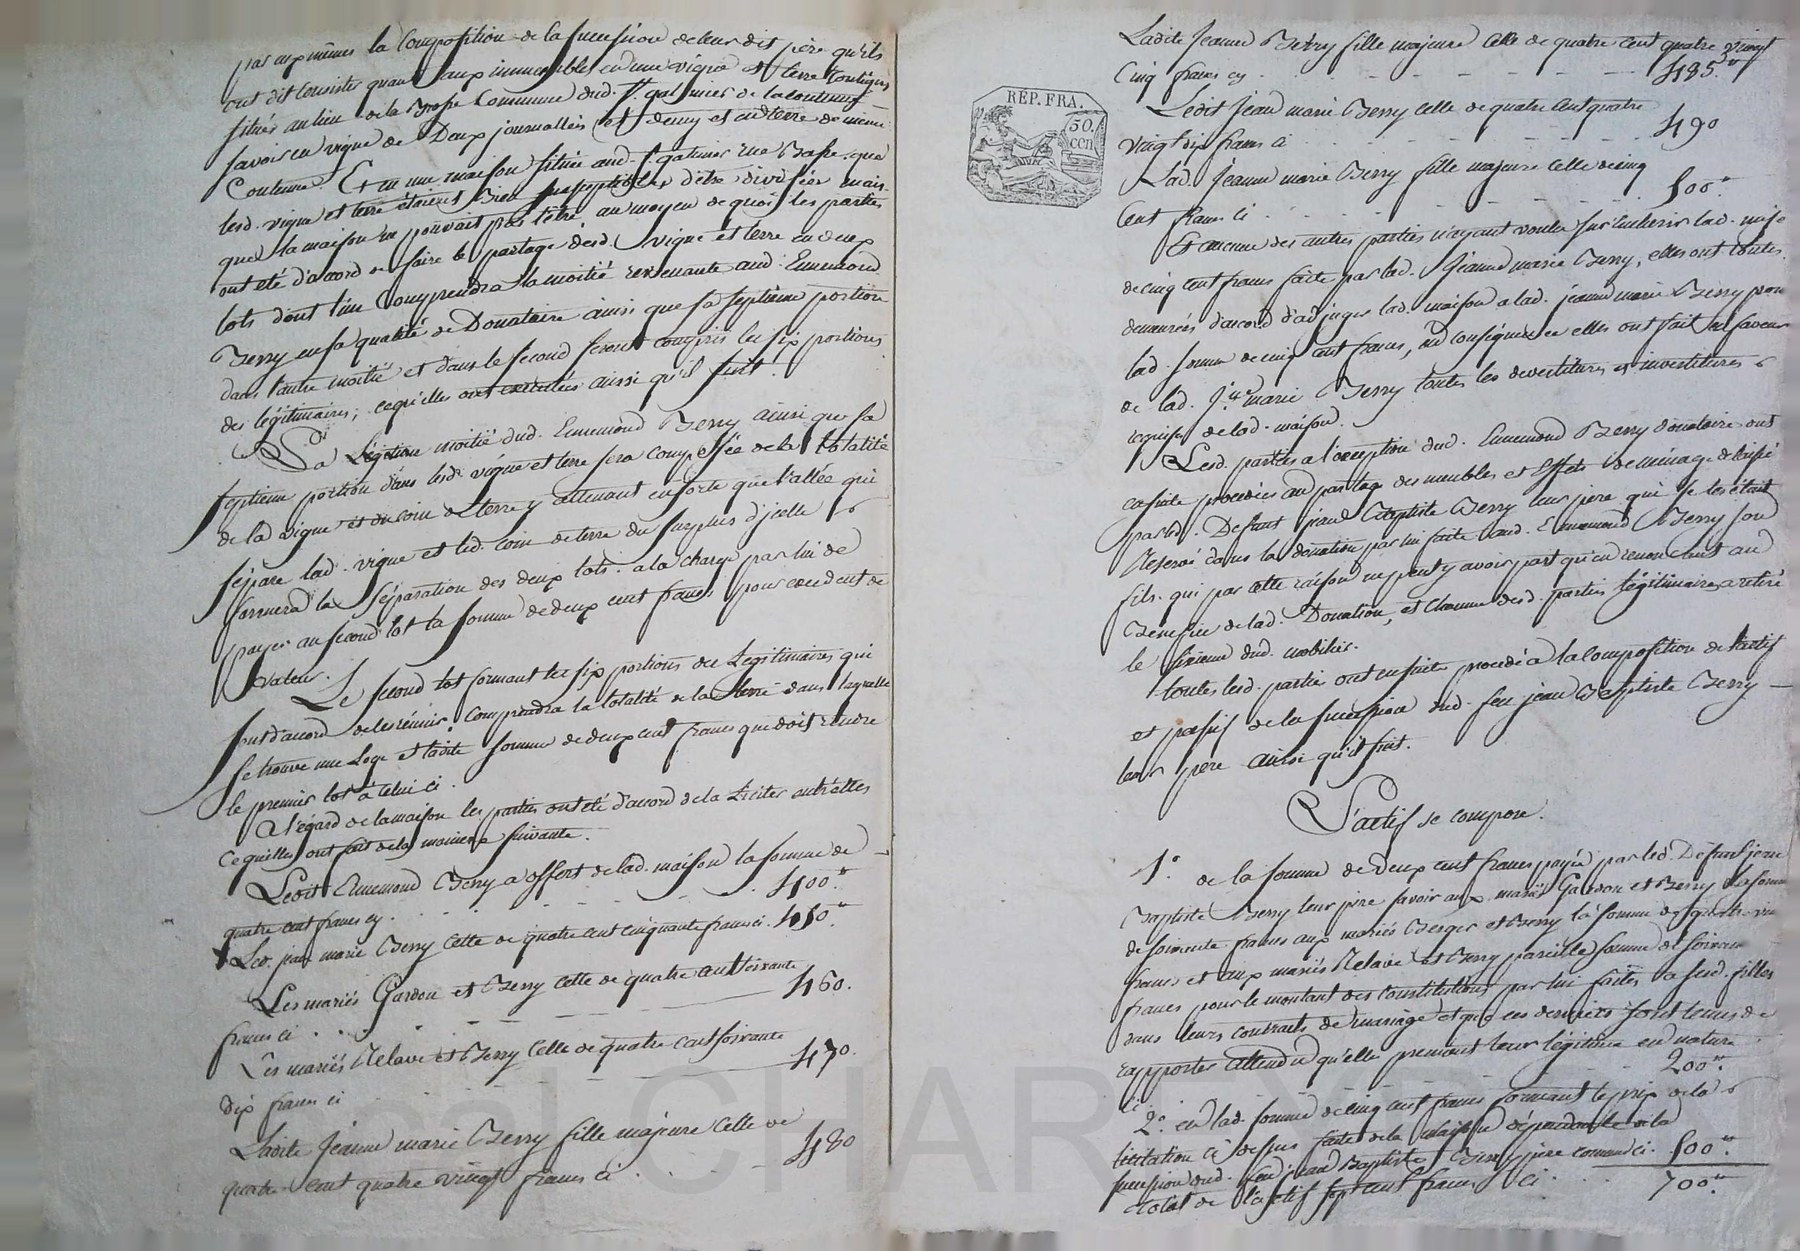 par eux mêmes la Composition de la succession de leur dit père qu'ils
ont dit consister quant aux immeubles en une vigne et terre contigus
situés au lieu de la Brosse Commune dud. St. galmier de la contenue
savoir en vigne de Deux journallées et demy et en terre de même
Contenue. Et en une maison située aud. St. galmier rue Basse. que
lesd. vigne et terre étoient Bien susceptibles d'être divisées mais
que la maison ne pouvait pas l'être au moyen de quoi les parties
ont été d'accord de faire le partage desd. vigne et terre en deux
lots dont l'un Comprendra la moitié revenante aud. Ennemond
Berry en sa qualité de Donataire ainsi que sa septieme portion
dans l'autre moitié et dans le second seront compris les six portions
des légitimaires; ce qu'elles ont exécutées ainsi qu'il suit.
La moitié dud. Ennemond Berry ainsi que sa
septieme portion dans lesd. vigne et terre sera composée de la totalité
de la vigne et du coin de terre y attenant en sorte que l'allée qui
sépare lad. vigne et led. coin de terre du surplus d'icelle
formera la séparation des deux lots. a la charge par lui de
payer au second lot la somme de deux cent francs pour excedent de
valeur.
Le second lot formant les six portions des Légitimaires qui
sont d'accord de les réunir, Comprendra la totalité de la terre dans laquelle
se trouve une Loge et ladite somme de deux cent francs que doit rendre
le premier lot à celui ci.
A l'égard de la maison les parties ont été d'accord de la Liciter entr'elles
Ce qu'elles ont fait de la maniere suivante.
Ledit Ennemond Berry a offert de lad. maison la somme de
quatre cent francs cy . . . 400.
Led. jean marie Berry Celle de quatre cent cinquante francs ci. 450.
Les mariés Gardon et Berry Celle de quatre cent soixante
francs ci . . . 460.
Les mariés Relave et Berry Celle de quatre cent soixante
dix francs ci 470.
Ladite Jeanne marie Berry fille majeure Celle de
quatre cent quatre vingt francs ci 480
Ladite Jeanne Berry fille majeure Celle de quatre cent quatre vingt
Cinq francs cy . . . 485.
Ledit Jean marie Berry Celle de quatre cent quatre
vingt dix francs ci 490
Lad. Jeanne marie Berry fille majeure celle de cinq
Cent francs ci . . . 500.
Et aucune des autres parties n'ayant voulu sur'encherir lad. mise
de cinq cent francs faite par lad. Jeanne marie Berry, elles ont toutes
demeurées d'accord d'adjuger lad. maison a lad. jeanne marie Berry pour
lad. somme de cinq cent francs, en conséquence elles ont fait en faveur
de lad. Jne. marie Berry toutes les devestitures et investitures
requises de lad. maison.
Lesd. parties a l'exception dud. Ennemond Berry donataire ont
ensuite procedées au partage des meubles et Effets de ménage delaissé
par led. Defunt jean Baptiste Berry leur pere qui se les était
Réservé dans la donation par lui faite aud. Ennemond Berry son
fils. qui par cette raison ne peut y avoir part qu'en renoncant au
Benefice de lad. Donation, et chacune desd. parties légitimaires a retiré
le sixieme dud. mobilier.
toutes lesd. parties ont ensuite procedé a la composition de l'actif
et passif de la succession dud. feu jean Baptiste Berry
leur père ainsi qu'il suit.
RÉP. FRA.
50. cen
L'actif se compose.
1.° de la somme de deux cent francs payée par led. Defunt jean
Baptiste Berry leur père savoir aux mariés Gardon et Berry la somme
de soixante francs aux mariés Berger et Berry la somme de quatre vin
francs et aux mariés Relave et Berry pareille somme de soixante
francs pour le montant des Constitutions par lui faites a sesd. filles
dans leurs contrats de mariage et que ces derniers sont tenus de
rapporter attendu qu'elles prennent leur légitime en nature
ci 200.
2.° en lad. somme de cinq cent francs formant le prix de la
licitation ci dessus faite de la Maison dépendante de la
succession dud. feu jean Baptiste Berry père commun ci. 500.
total de l'actif sept cent francs Ci . . . 700.
CHARLY